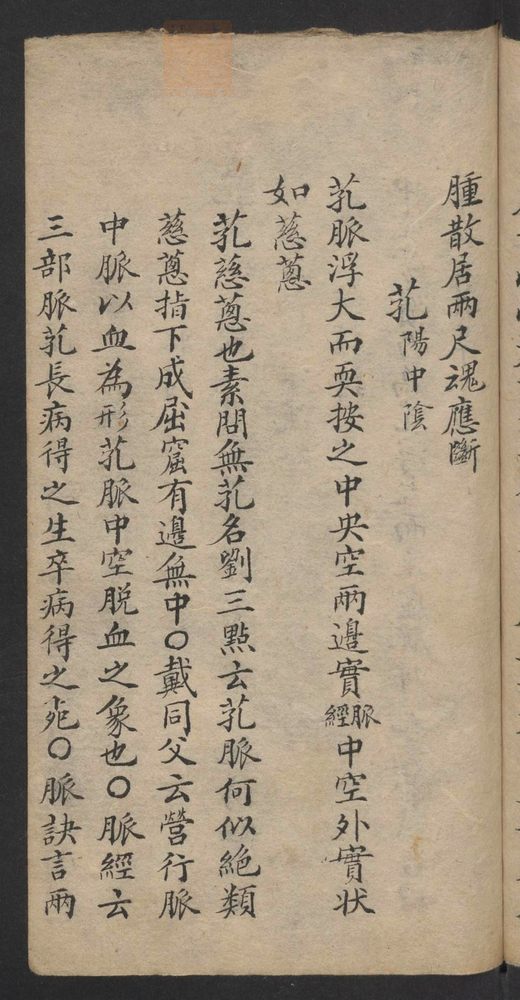 腫散居兩尺魂應斷
芤陽中陰
芤脈浮大而耎按之中央空兩邉實脈經中空外實状
如慈蔥
芤慈蔥也素問無芤名劉三點云芤脈何似絶類
慈蔥指下成屈窟有邉無中○戴同父云營行脈
中脈以血為形芤脈中空脱血之象也○脈經云
三部脈芤長病得之生卒病得之死○脈訣言兩